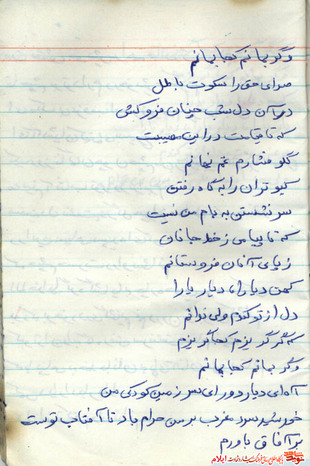 وگر بمانم کجا بمانم
صدای حق را سکوت باطل
در آن دل شب چنان فرو کشی
که تا قیامت در این مصیبت
گلو فشارم غم نهانم
کبوتران را به گاه رفتن
سر نشستن به بام من نیست
که تا پیامی ز خط جانان
ز پای آنان فرو ستانم
کهن دیارا، دیار یارا
دل از تو کندم ولی ندانم
که گر گریزم کجا گریزم
وگر بمانم کجا بمانم
آه ای دیار دور ای سرزمین کودکی من
خورشید سرد مغرب بر من حرام باد تا آفتاب توست
در آفاق باورم